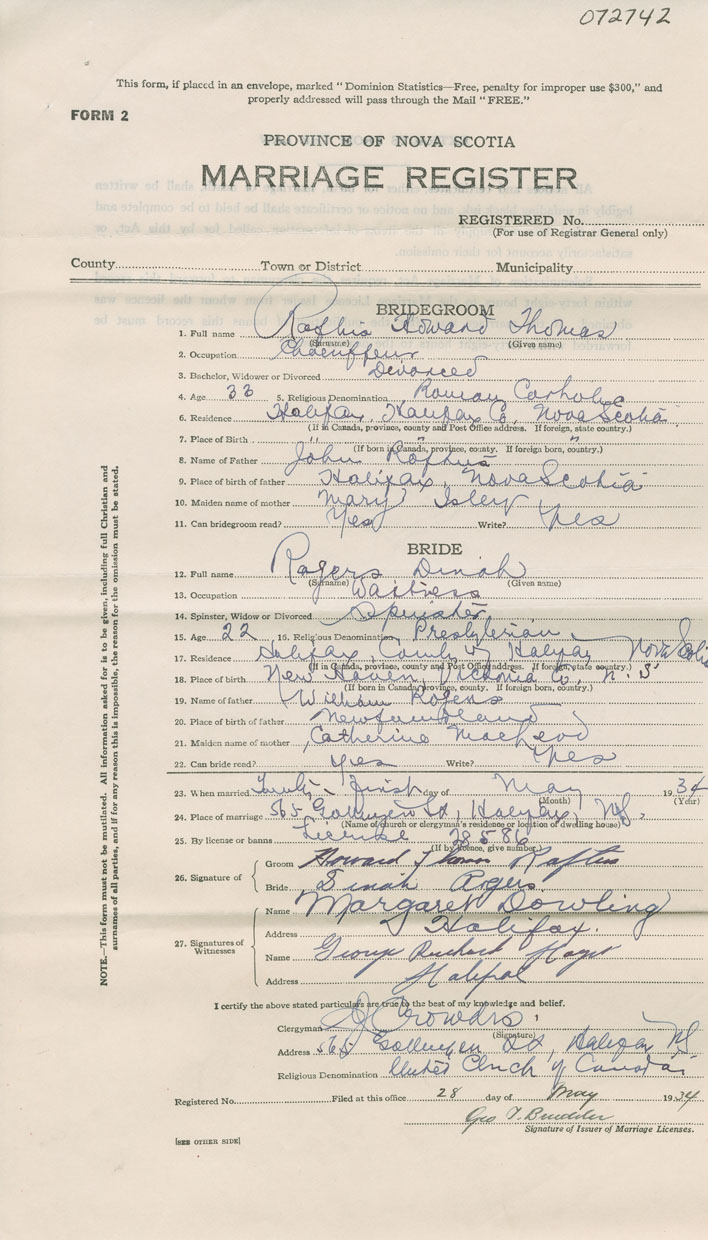 072742
This form, if placed in an envelope, marked "Dominion Statistics—Free, penalty for improper use $300," and
properly addressed will pass through the Mail "FREE."
FORM 2
PROVINCE OF NOVA SCOTIA
MARRIAGE REGISTER
REGISTERED No.
(For use of Registrar General only)
County Town or District Municipality
BRIDEGROOM
1. Full name Howard Thomas
(Surname) (Given name)
2. Occupation Chauffeur
3. Bachelor, Widower or Divorced Divorced
4. Age 33 5. Religious Denomination Roman Catholic
6. Residence Halifax, Halifax Co, Nova Scotia
(If in Canada, province, county and Post Office address. If foreign, state country.)
7. Place of Birth " " "
(If born in Canada, province, county. If foreign born, country.)
8. Name of Father John
9. Place of birth of father Halifax, Nova Scotia
10. Maiden name of mother Mary Isley
11. Can bridegroom read? Yes Write? Yes
BRIDE
12. Full name Rogers Dinah
(Surname) (Given name)
13. Occupation Waitress
14. Spinster, Widow or Divorced Spinster
15. Age 22 16. Religious Denomination Presbyterian
17. Residence Halifax, County of Halifax Nova Scotia
(If in Canada, province, county and Post Office address. If foreign, state country.)
18. Place of birth New Haven, Victoria Co, N.S
(If born in Canada, province, county. If foreign born, country.)
19. Name of father William Rogers
20. Place of birth of father Newfoundland
21. Maiden name of mother Catherine MacLeod
22. Can bride read? Yes Write? Yes
23. When married Twenty-First day of May 1934
(Month) (Year)
24. Place of marriage 565 Gottingen St, Halifax, NS,
(Name of church or clergyman's residence or location of dwelling house)
25. By license or banns License 28586
(If by licence, give number.)
26. Signature of
Groom Howard Thomas Raftus
Bride Dinah Rogers
27. Signatures of Witnesses
Name Margaret Dowling
Address Halifax.
Name George
Address Halifax
I certify the above stated particulars are true to the best of my knowledge and belief.
Clergyman Crowdis
(Signature)
Address 565 Gottingen St, Halifax NS
Religious Denomination United Church of Canada
Registered No. Filed at this office 28 day of May 1934
Geo
Signature of Issuer of Marriage Licenses.
[SEE OTHER SIDE]
NOTE.—This form must not be mutilated. All information asked for is to be given, including full Christian and
surnames of all parties, and if for any reason this is impossible, the reason for the omission must be stated.